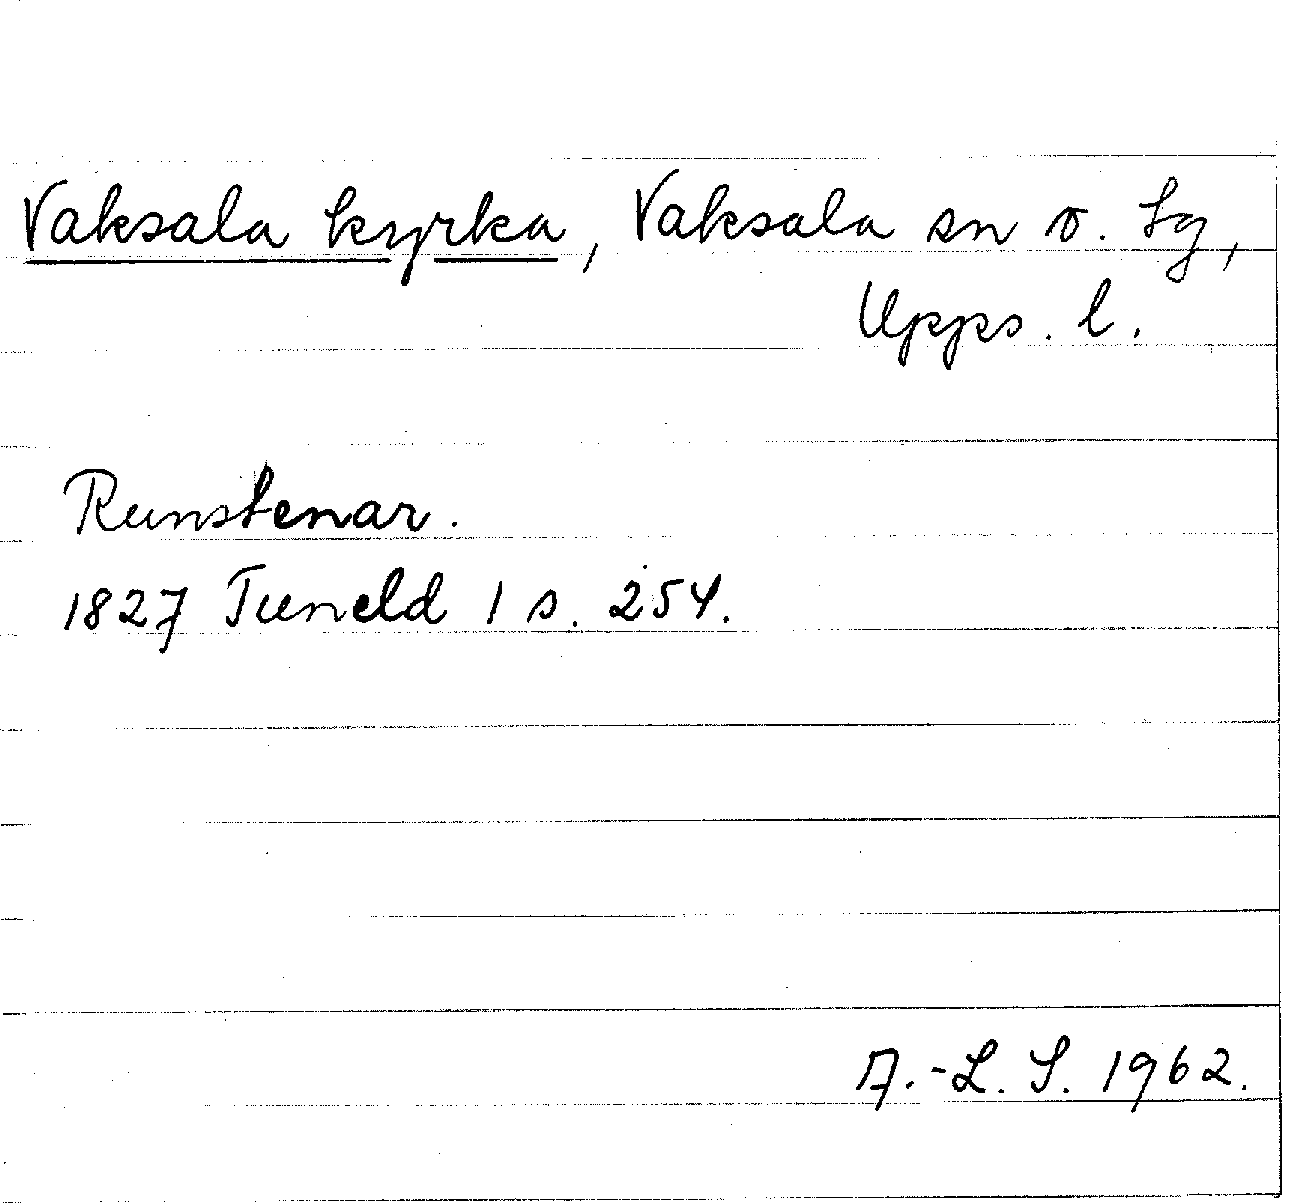 Vaksala kyrka, Vaksala sn o. Sg,
Upps. l.
Runstenar.
1827 Tuneld 1 s. 254.
A.-L. S. 1962.